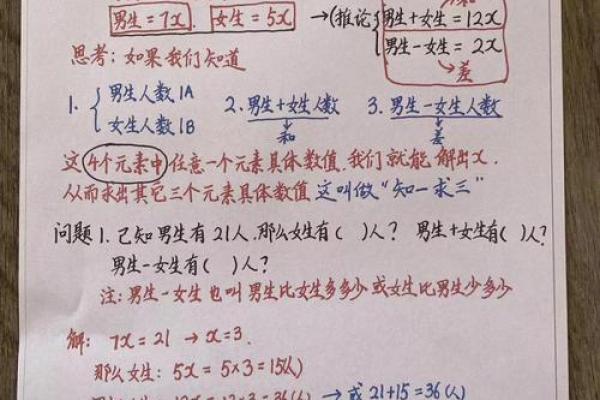 男生 = 7x. 女生 = 5x → (推论 { 男生 + 女生 = 12x
男生 - 女生 = 2x
↘ 差
思考: 如果我们知道
1. { 男生人数 1A
女生人数 1B
2. 男生 + 女生人数
和
3. 男生 - 女生人数
差
这 4个元素中 任意一个元素具体数值, 我们就能解出x.
从而求出其它三个元素具体数值 这叫做 "知一求三"
问题1. 已知男生有21人, 那么女生有( )人? 男生+女生有( )人?
男生-女生有( )人?
注: 男生-女生 也叫 男生比女生多多少 或女生比男生少多少
解: 7x = 21 → x = 3.
那么女生: 5x = 5×3 = 15(人)
男生+女生 = 12x = 12×3 = 36(人) → 或 21+15 = 36(人)